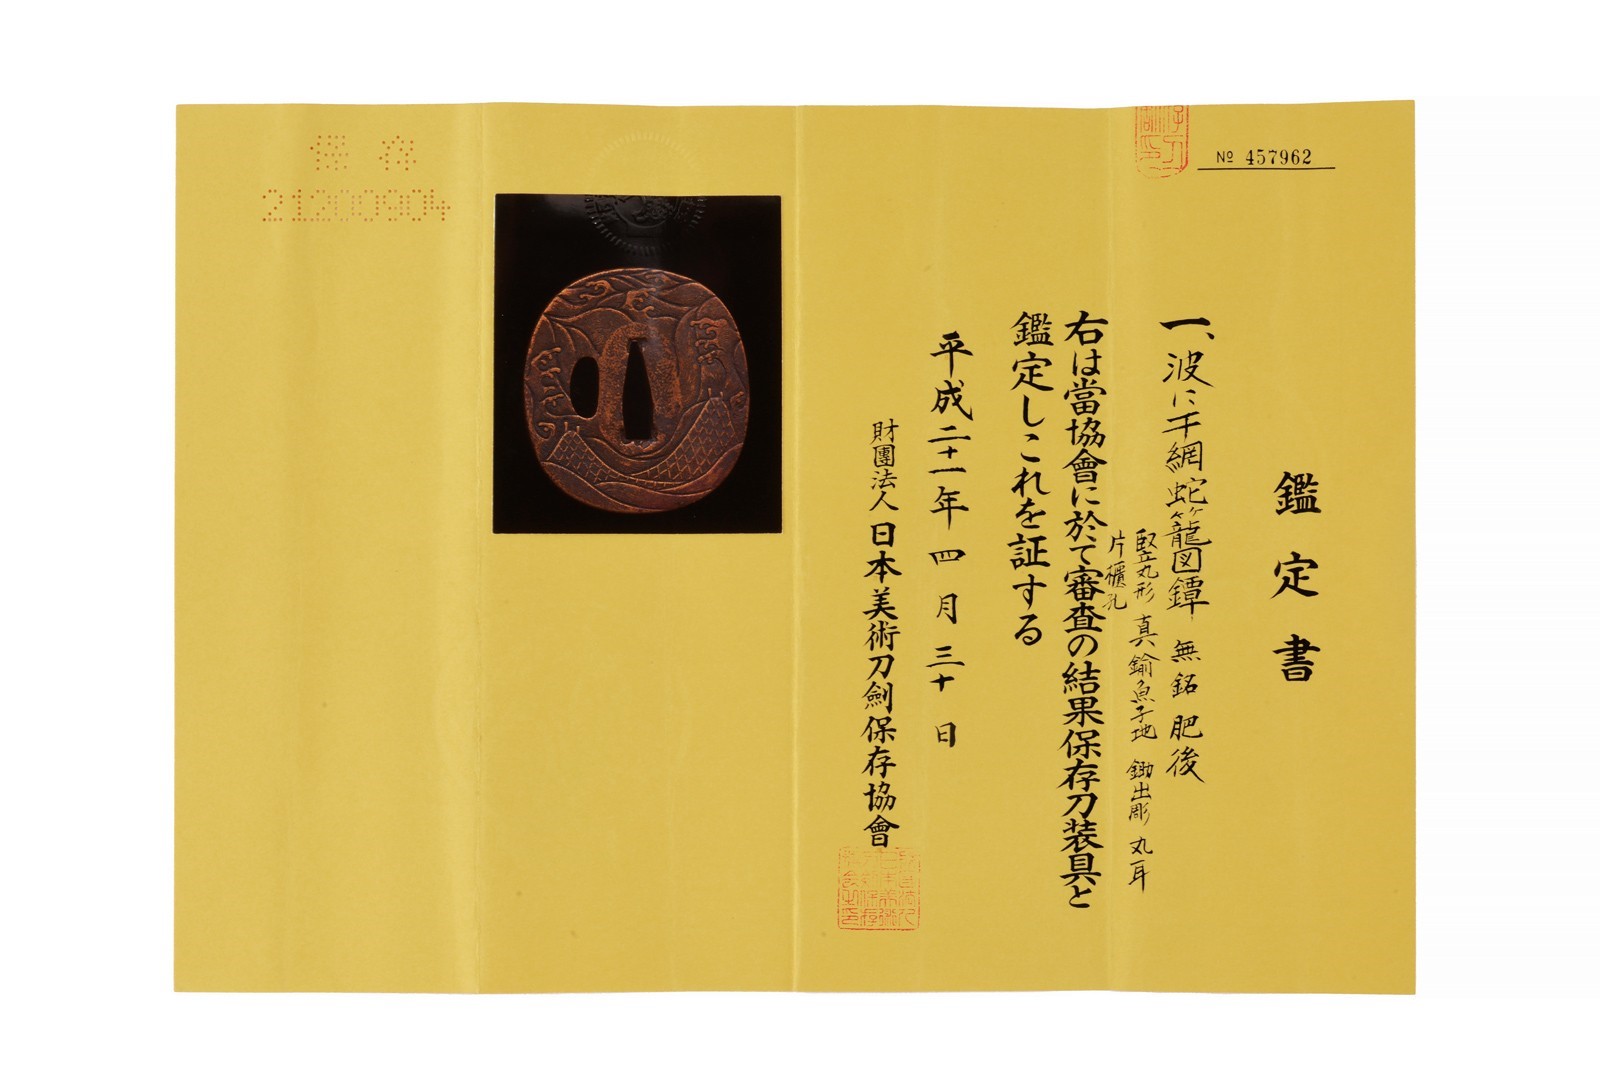 鑑定書
№ 457962
一、波に干網蛇籠図鐔 無銘 肥後
竪丸形 真鍮魚子地 鋤出彫 丸耳
片櫃孔
右は當協會に於て審査の結果保存刀装具と
鑑定しこれを証する
平成二十一年四月三十日
財團法人 日本美術刀劍保存協會
保存
21200904